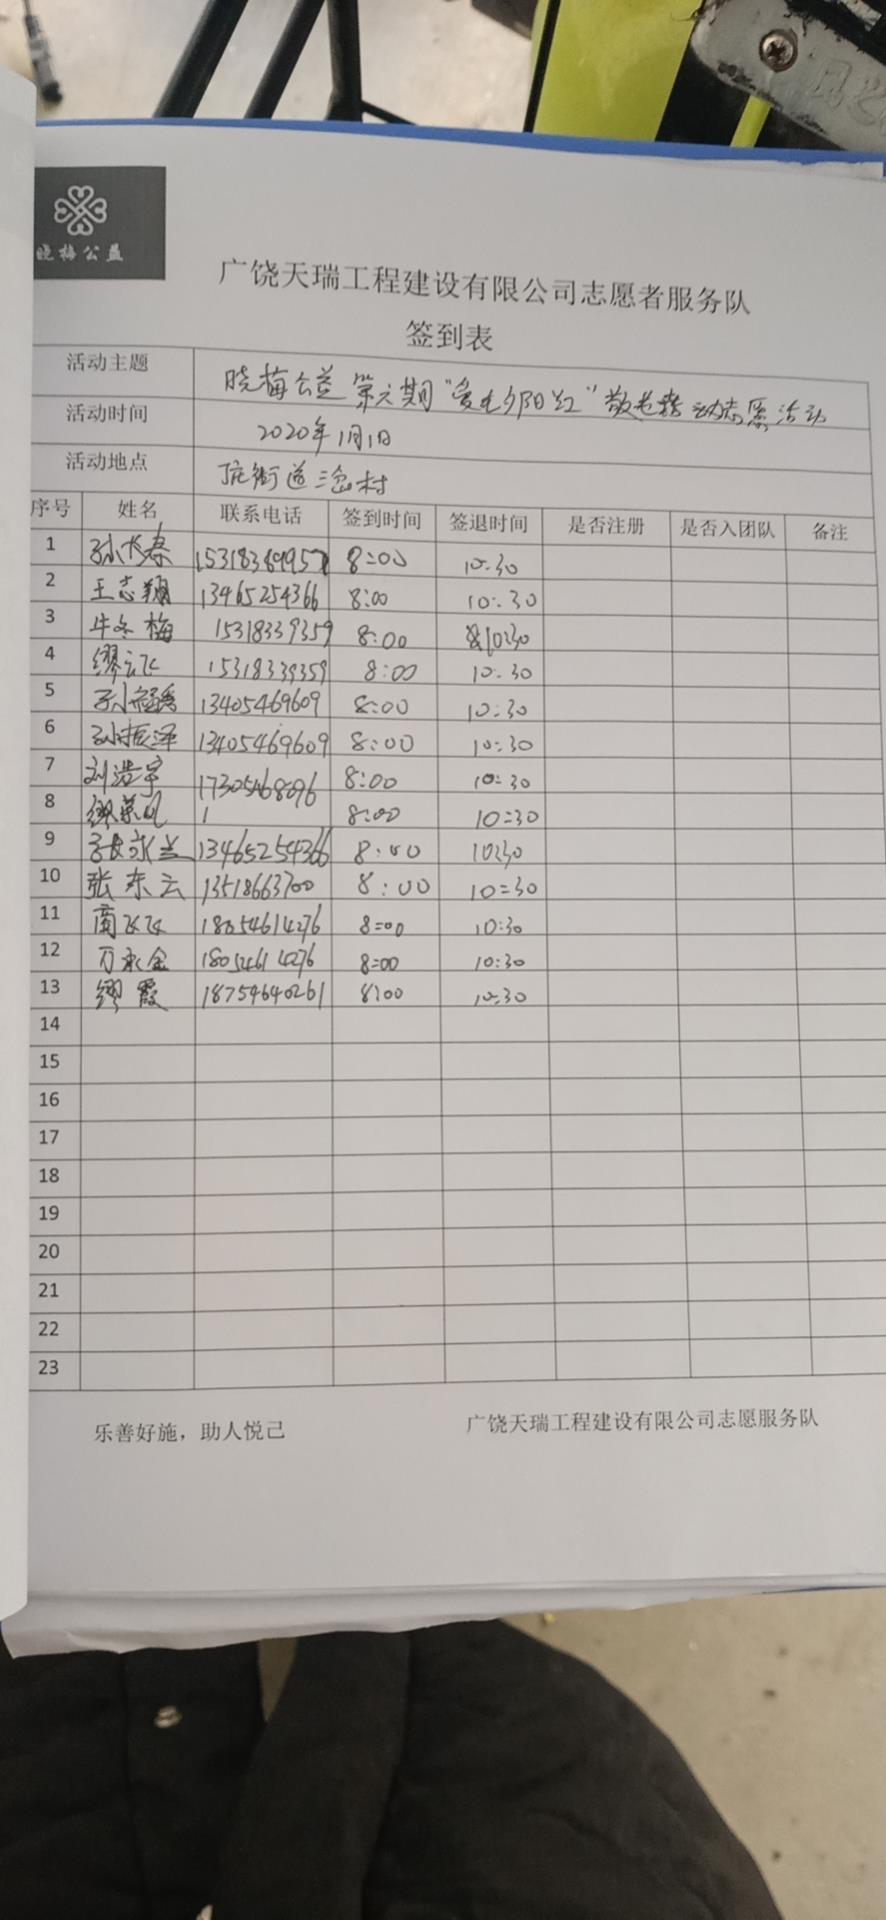 晓梅公益
广饶天瑞工程建设有限公司志愿者服务队
签到表
活动主题 晓梅公益第六期"爱老夕阳红"敬老 志愿活动
活动时间 2020年1月1日
活动地点 街道 村
序号 姓名 联系电话 签到时间 签退时间 是否注册 是否入团队 备注
1 孙长春 8:00 10:30
2 王志翔 13465254366 8:00 10:30
3 牛冬梅 15318339359 8:00 10:30
4 缪 飞 15318339359 8:00 10:30
5 孙 13405469609 8:00 10:30
6 孙振泽 13405469609 8:00 10:30
7 刘浩宇 8:00 10:30
8 缪 8:00 10:30
9 张永兰 13465254366 8:00 10:30
10 张东云 13518663700 8:00 10:30
11 商飞飞 18054614276 8:00 10:30
12 万永金 18054614276 8:00 10:30
13 缪霞 18754640261 8:00 10:30
14
15
16
17
18
19
20
21
22
23
乐善好施，助人悦己 广饶天瑞工程建设有限公司志愿服务队